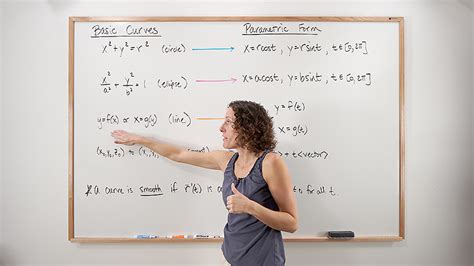 Basic Curves Parametric Form
x² + y² = r² (circle) x = rcost, y = rsint, t∈[0, 2π]
x²/a² + y²/b² = 1 (ellipse) x = acost, y = bsint, t∈[0, 2π]
y = f(t)
y=f(x) or x=g(y) (line) x = g(t)
(x₀, y₀, z₀) to (x₁, y₁, + t<vector>
A curve is smooth if r'(t) is for all t